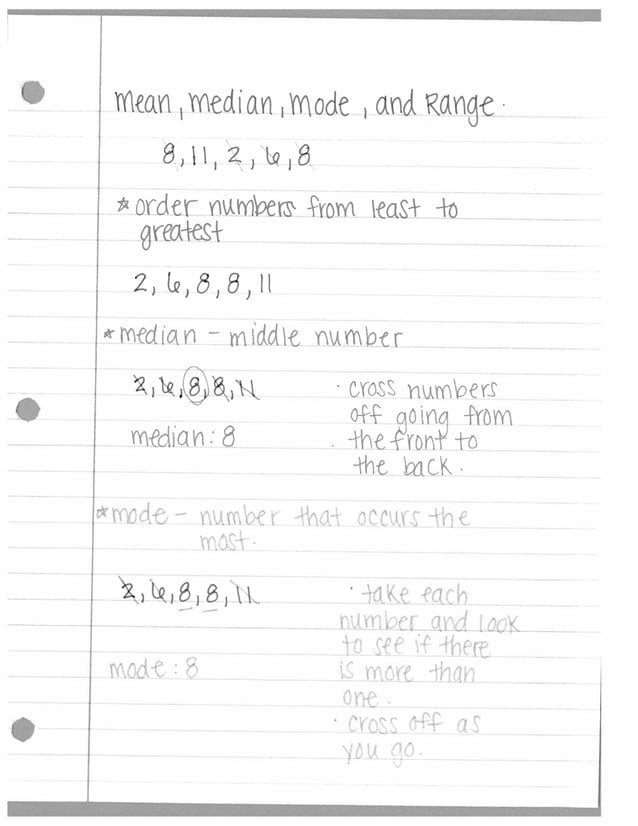 mean, median, mode, and Range.
8, 11, 2, 6, 8
* order numbers from least to
greatest
2, 6, 8, 8, 11
* median - middle number
2, 6, 8, 8, 11
median: 8
· cross numbers
off going from
the front to
the back.
* mode - number that occurs the
most.
2, 6, 8, 8, 11
mode: 8
· take each
number and look
to see if there
is more than
one.
· cross off as
you go.